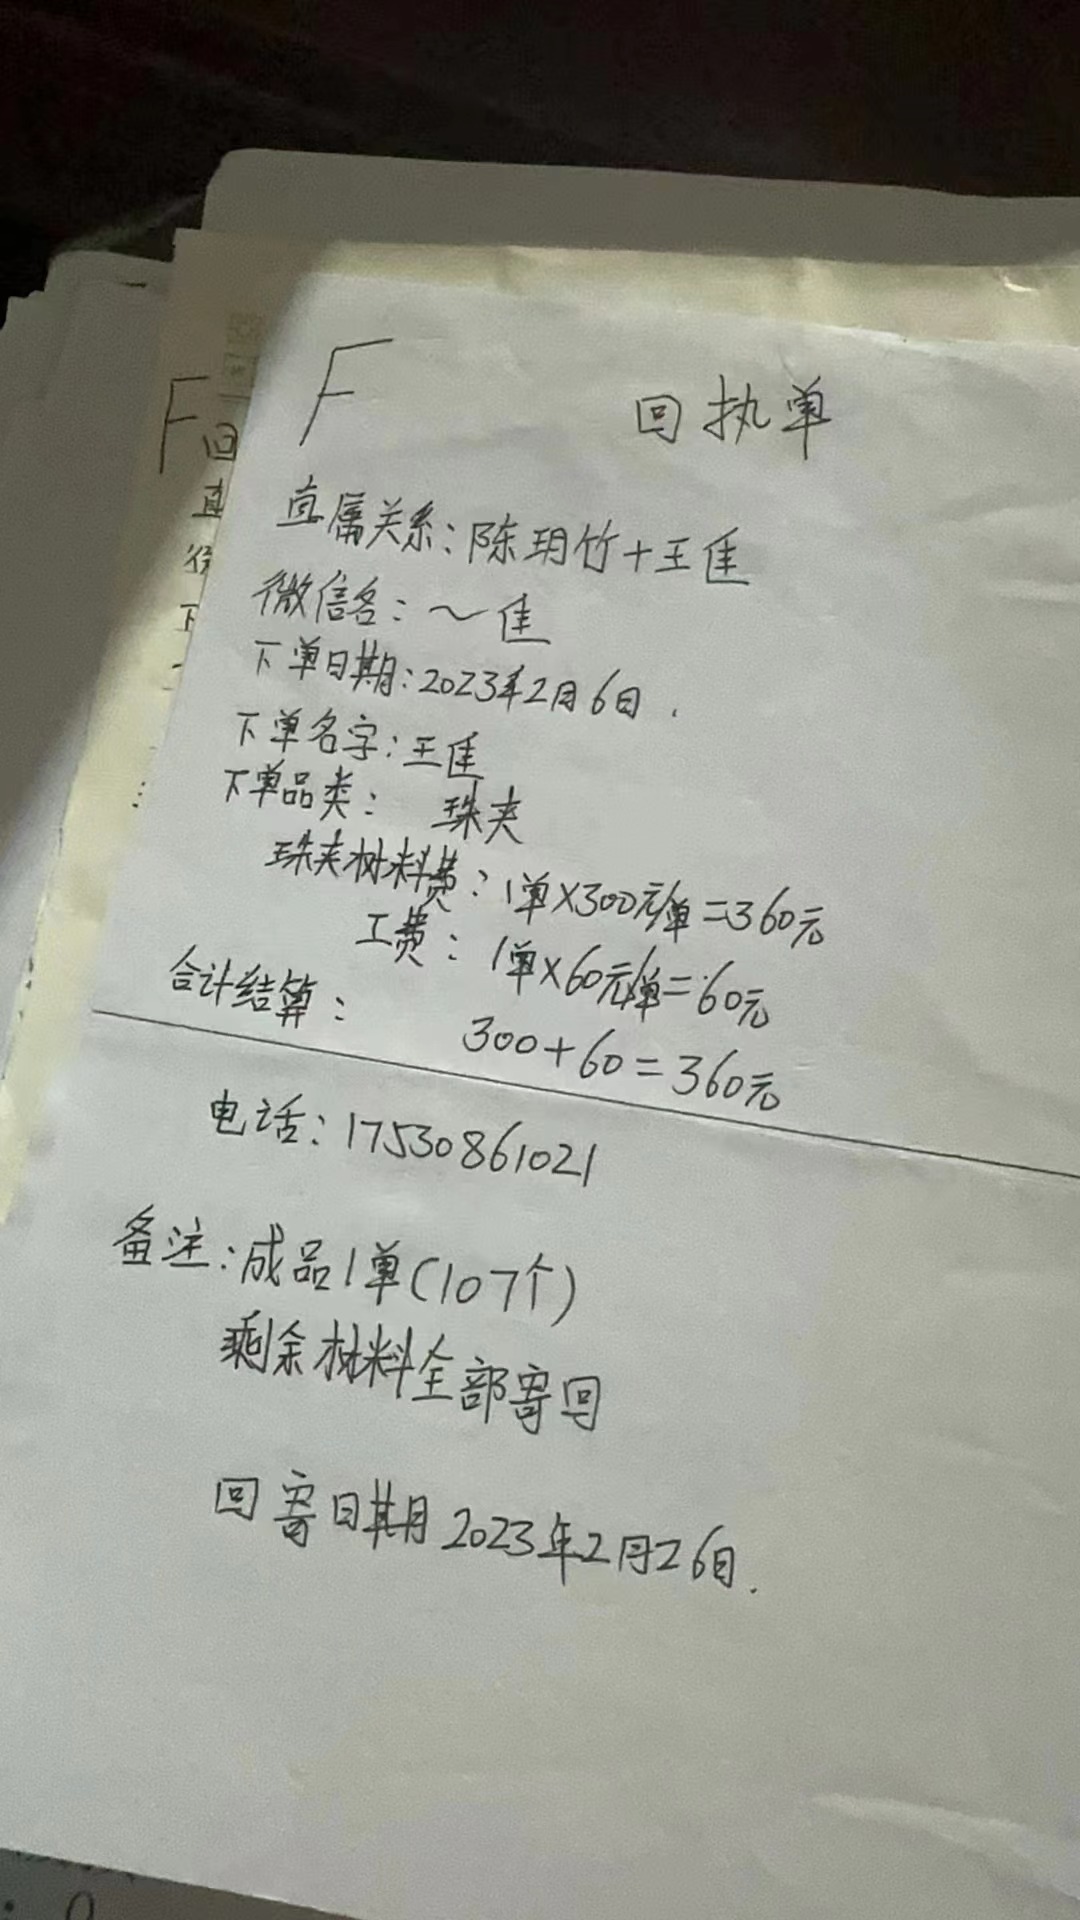 F 回执单
直属关系：陈玥竹+王佳
微信名：～佳
下单日期：2023年2月6日.
下单名字：王佳
下单品类： 珠夹
珠夹材料费：1单×300元/单=360元
工费：1单×60元/单=60元
合计结算： 300+60=360元
电话：17530861021
备注：成品1单(107个)
剩余材料全部寄回
回寄日期2023年2月26日.
F回
直
下